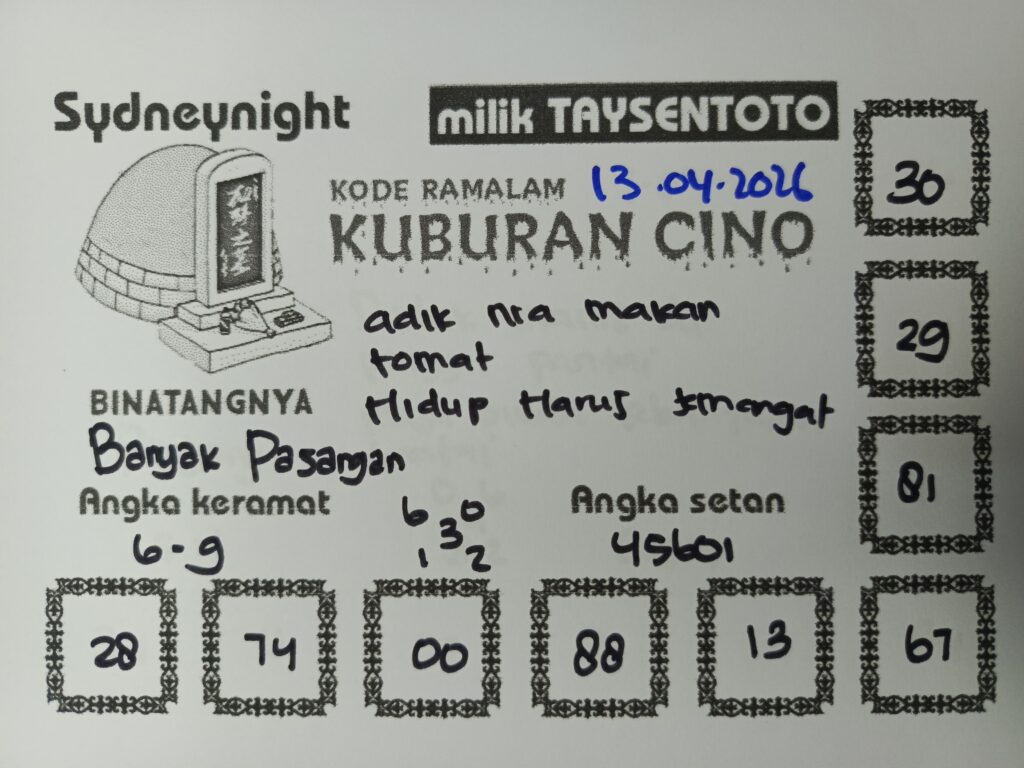 Sydneynight
milik TAYSENTOTO
KODE RAMALAM 13.04.2026
KUBURAN CINO
adik nra makan
tomat
Hidup Harus smangat
BINATANGNYA
Banyak Pasangan
Angka keramat
6-9
6 0
3
1 2
Angka setan
45601
30
29
81
28 74 00 88 13 67